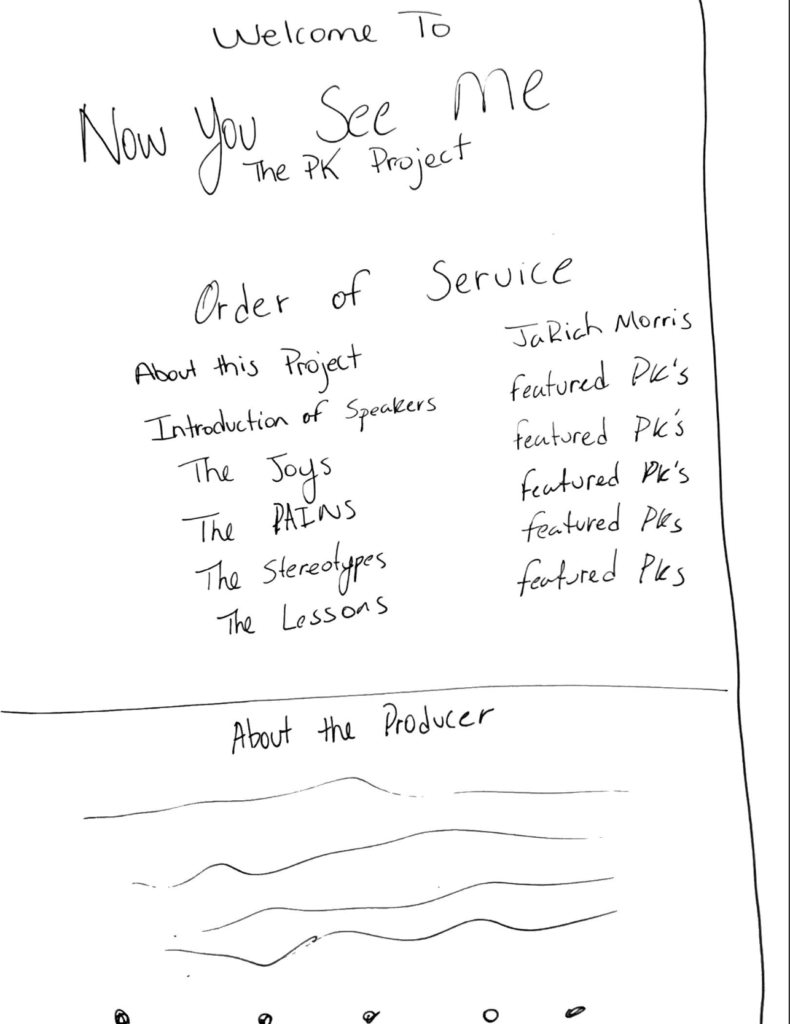 Welcome To
Now You See Me
The PK Project
Order of Service
About this Project JaRich Morris
Introduction of Speakers featured PK's
The Joys featured PK's
The PAINS featured PK's
The Stereotypes featured PKs
The Lessons featured PKs
About the Producer